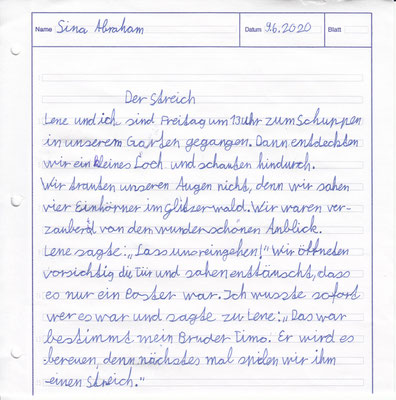 Name Sina Abraham Datum 9.6.2020 Blatt
Der Streich
Lene und ich sind Freitag um 13 uhr zum Schuppen
in unserem Garten gegangen. Dann entdeckten
wir ein kleines Loch und schauten hindurch.
Wir trauten unseren Augen nicht, denn wir sahen
vier Einhörner im Glitzerwald. Wir waren ver-
zaubert von dem wunderschönen Anblick.
Lene sagte: „Lass uns reingehen!" Wir öffneten
vorsichtig die Tür und sahen enttäuscht, dass
es nur ein Poster war. Ich wusste sofort
wer es war und sagte zu Lene: „Das war
bestimmt mein Bruder Timo. Er wird es
bereuen, denn nächstes mal spielen wir ihm
einen Streich."